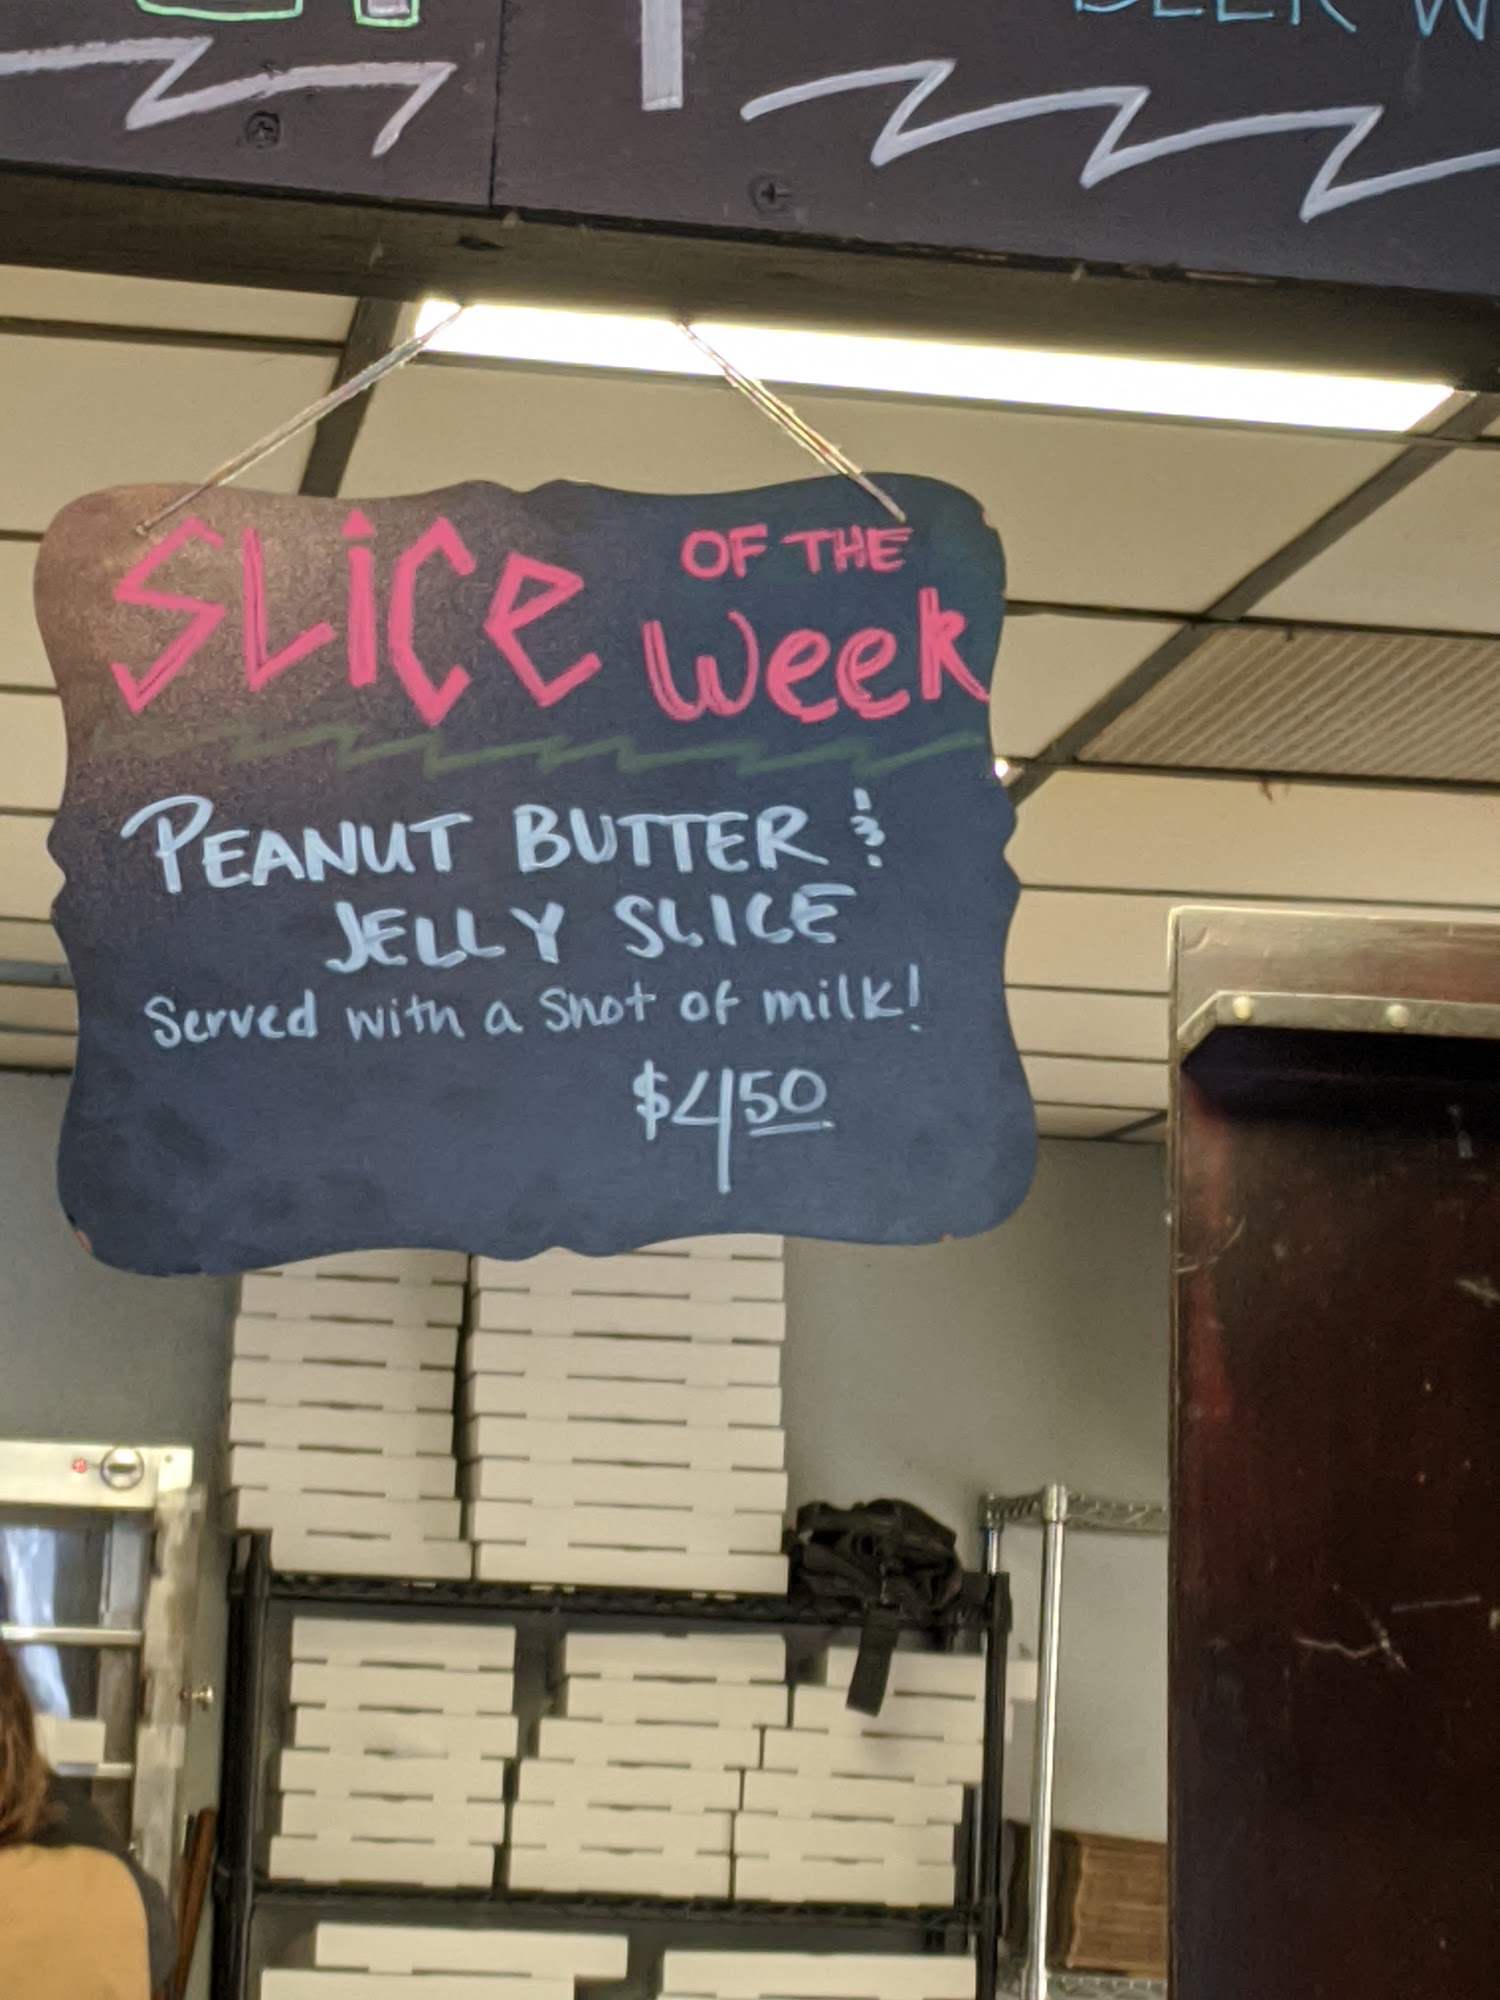 BEER W
SLiCe OF THE
Week
PEANUT BUTTER &
JELLY SLICE
Served with a Shot of milk!
$4 50